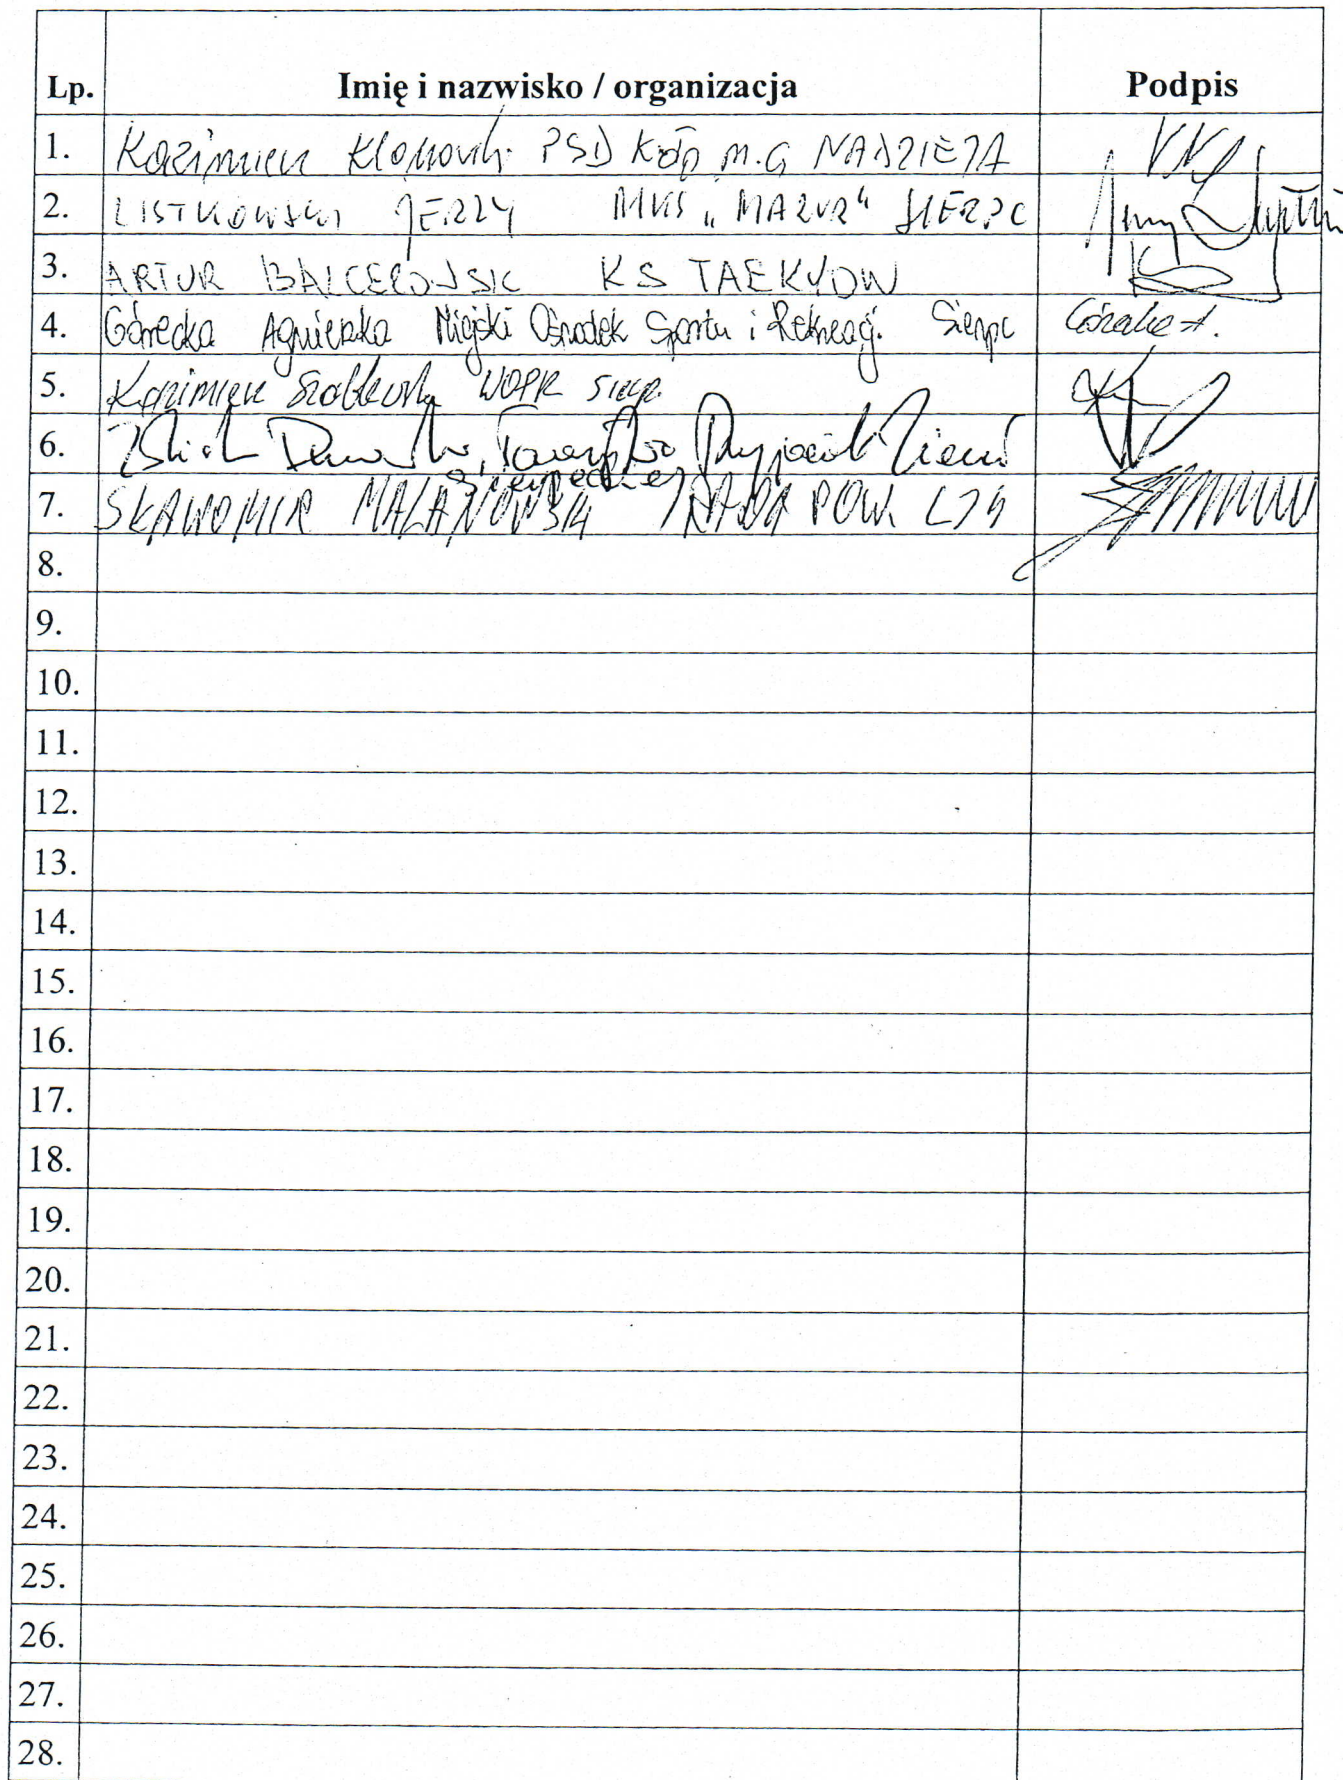 Lp. Imię i nazwisko / organizacja Podpis
1. Kazimierz PSD m.G NADZIEJA
2. LISTKOWSKI JERZY MKS „MAZUR" SIERPC
3. ARTUR BALCEROWSK KS TAEKWOW
4. Górecka Agnieszka Miejski Ośrodek Sportu i Rekreacji. Sierpc Górecka A.
5. Kazimierz WOPR Sierpc
6. Przyjaciół Ziemi
Sierpeckiej
7. SŁAWOMIR MALANOWSKI RADA POW. LZS
8.
9.
10.
11.
12.
13.
14.
15.
16.
17.
18.
19.
20.
21.
22.
23.
24.
25.
26.
27.
28.